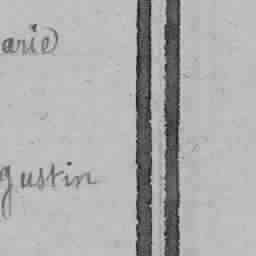 arie
gustin